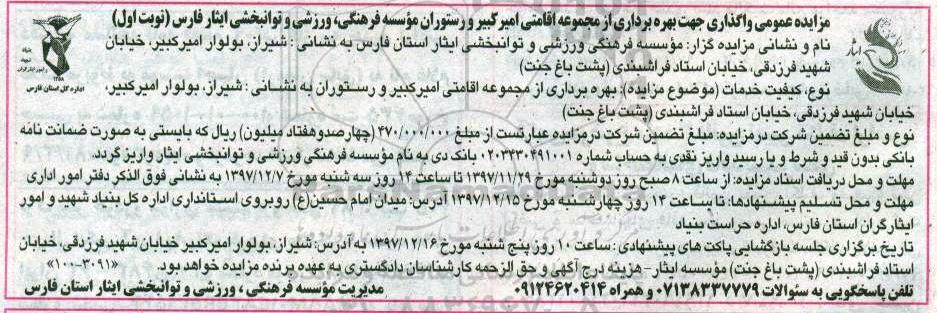 مزایده عمومی واگذاری جهت بهره برداری از مجموعه اقامتی امیرکبیر و رستوران مؤسسه فرهنگی، ورزشی و توانبخشی ایثار فارس (نوبت اول)
نام و نشانی مزایده گزار: مؤسسه فرهنگی ورزشی و توانبخشی ایثار استان فارس به نشانی: شیراز، بولوار امیرکبیر، خیابان
شهید فرزدقی، خیابان استاد فراشبندی (پشت باغ جنت)
نوع، کیفیت خدمات (موضوع مزایده): بهره برداری از مجموعه اقامتی امیرکبیر و رستوران به نشانی: شیراز، بولوار امیرکبیر،
خیابان شهید فرزدقی، خیابان استاد فراشبندی (پشت باغ جنت)
نوع و مبلغ تضمین شرکت در مزایده: مبلغ تضمین شرکت در مزایده عبارتست از مبلغ ۴۷۰/۰۰۰/۰۰۰ (چهارصدوهفتاد میلیون) ریال که بایستی به صورت ضمانت نامه
بانکی بدون قید و شرط و یا رسید واریز نقدی به حساب شماره ۰۲۰۳۴۳۰۴۹۱۰۰۱ بانک دی به نام مؤسسه فرهنگی ورزشی و توانبخشی ایثار واریز گردد.
مهلت و محل دریافت اسناد مزایده: از ساعت ۸ صبح روز دوشنبه مورخ ۱۳۹۷/۱۱/۲۹ تا ساعت ۱۴ روز سه شنبه مورخ ۱۳۹۷/۱۲/۷ به نشانی فوق الذکر دفتر امور اداری
مهلت و محل تسلیم پیشنهادها: تا ساعت ۱۴ روز چهارشنبه مورخ ۱۳۹۷/۱۲/۱۵ آدرس: میدان امام حسین(ع) روبروی استانداری اداره کل بنیاد شهید و امور
ایثارگران استان فارس، اداره حراست بنیاد
تاریخ برگزاری جلسه بازگشایی پاکت های پیشنهادی: ساعت ۱۰ روز پنج شنبه مورخ ۱۳۹۷/۱۲/۱۶ به آدرس: شیراز، بولوار امیرکبیر خیابان شهید فرزدقی، خیابان
استاد فراشبندی (پشت باغ جنت) مؤسسه ایثار- هزینه درج آگهی و حق الزحمه کارشناسان دادگستری به عهده برنده مزایده خواهد بود. «۱۰۰-۳۰۹۱»
تلفن پاسخگویی به سئوالات ۰۷۱۳۸۳۳۷۷۷۹ و همراه ۰۹۱۲۴۶۲۰۴۱۴ مدیریت مؤسسه فرهنگی، ورزشی و توانبخشی ایثار استان فارس
ایثار
بنیاد
شهید
و امور ایثارگران
اداره کل استان فارس